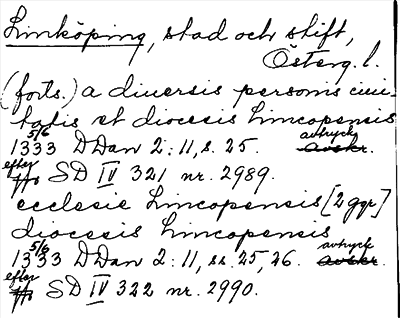 Linköping, stad och stift,
Österg. l.
(forts.) a diuersis personis ciui-
tatis et diocesis Lincopensis
1333 5/6 DDan 2:11, s. 25. avtryck avskr.
efter SD IV 321 nr. 2989.
ecclesie Lincopensis [2 ggr]
diocesis Lincopensis
1333 5/6 DDan 2:11, ss. 25, 26. avtryck avskr.
efter SD IV 322 nr. 2990.